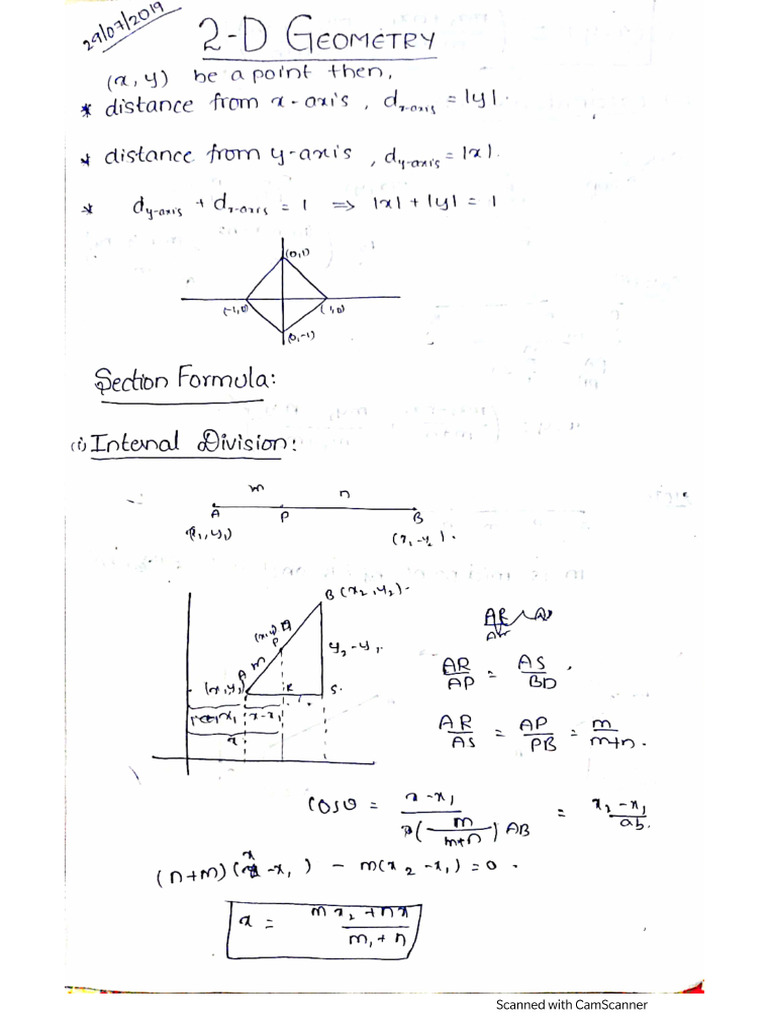 29/07/2019
2-D GEOMETRY
(x, y) be a point then,
* distance from x-axis, d_x-axis = |y|.
* distance from y-axis, d_y-axis = |x|.
* d_y-axis + d_x-axis = 1 ⇒ |x| + |y| = 1
(0,1)
(-1,0) (1,0)
(0,-1)
Section Formula:
(i) Internal Division:
m n
A P B
(x₁,y₁) (x₁-y₂).
B (x₂,y₂).
(x,y)
P
m
y₂-y₁
A
(x₁,y₁) R S.
x₁ x-x₁
x
AR/AP = AS/BD.
AR/AS = AP/PB = m/m+n.
cosθ = x-x₁/(m/m+n)AB = x₂-x₁/ab.
(n+m)(x-x₁) - m(x₂-x₁) = 0.
x = mx₂+nx/m₁+n
Scanned with CamScanner